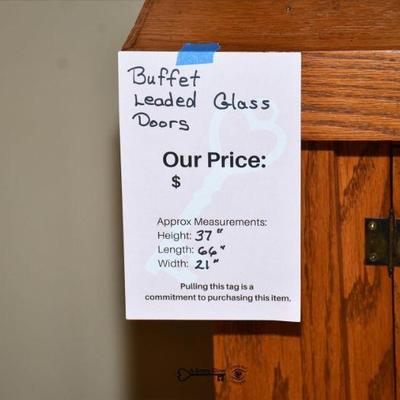 Buffet
Leaded Glass
Doors
Our Price:
$
Approx Measurements:
Height: 37"
Length: 66"
Width: 21"
Pulling this tag is a
commitment to purchasing this item.